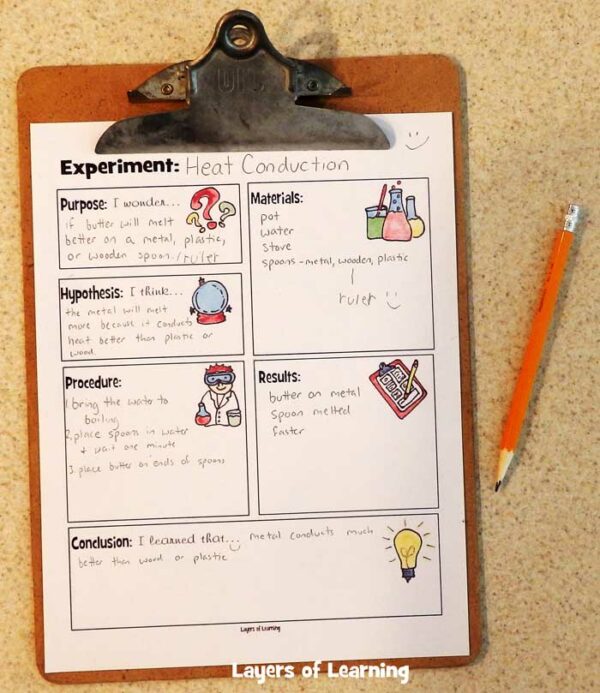 Experiment: Heat Conduction
Purpose: I wonder...
if butter will melt
better on a metal, plastic,
or wooden spoon./ruler
Hypothesis: I think...
the metal will melt
more because it conducts
heat better than plastic or
wood
Materials:
pot
water
stove
spoons - metal, wooden, plastic
ruler
Procedure:
1. bring the water to
boiling
2. place spoons in water
+ wait one minute
3. place butter on ends of spoons
Results:
butter on metal
spoon melted
faster
Conclusion: I learned that... metal conducts much
better than wood or plastic
Layers of Learning
Layers of Learning